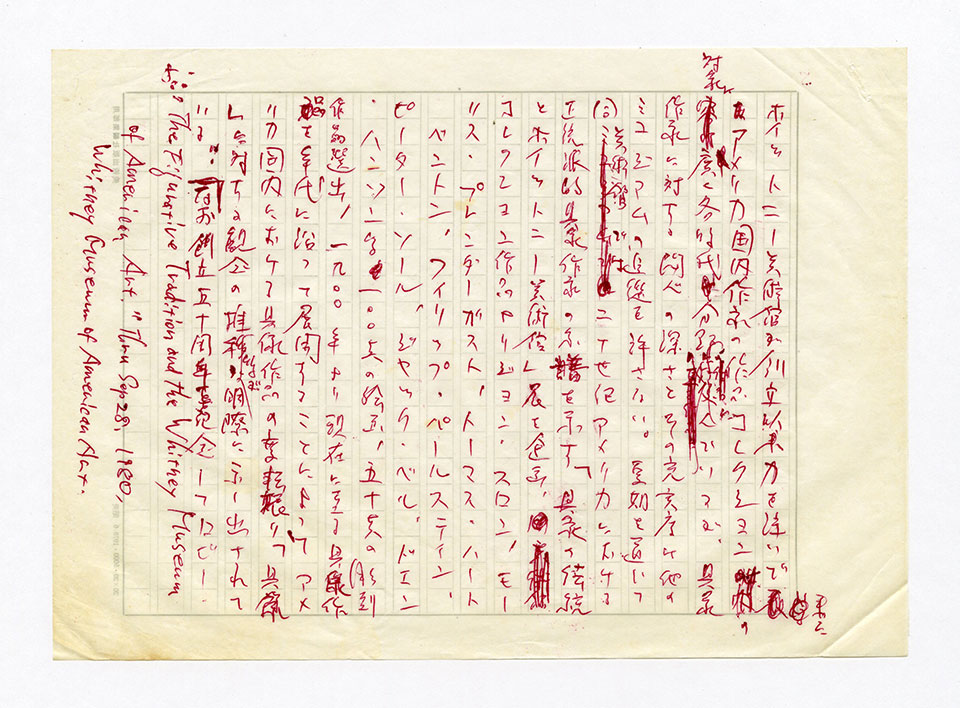 ホイットニー美術館が創立以来力を注いで
アメリカ国内作家の作品コレクション
対象
広く各時代
具象
作家に対する関心の深さとその充実度は他の
ミュージアムの追従を許さない。夏期を通じて
同美術館では二十世紀アメリカに於ける
正統派的具象作家の系譜を示す「具象の伝統
とホイットニー美術館」展を企画、
コレクション作品よりジョン・スローン、モー
リス・プレンダーガスト、トーマス・ハート
ベントン、フィリップ・パールスティン、
ピーター・ソール、ジャック・ベル、ドエン
・ハンソン等一〇〇点の絵画、五十点の彫刻
作品選出、一九〇〇年より現在に至る具象作
品を年代に沿って展開することによって アメ
リカ国内に於ける具象作品の変転 具象
に対する観念の推移が明瞭に示し出されて
いる。 創立五十周年記念
"The Figurative Tradition and the Whitney Museum
of American Art." Thru Sep 28, 1980,
Whitney Museum of American Art.